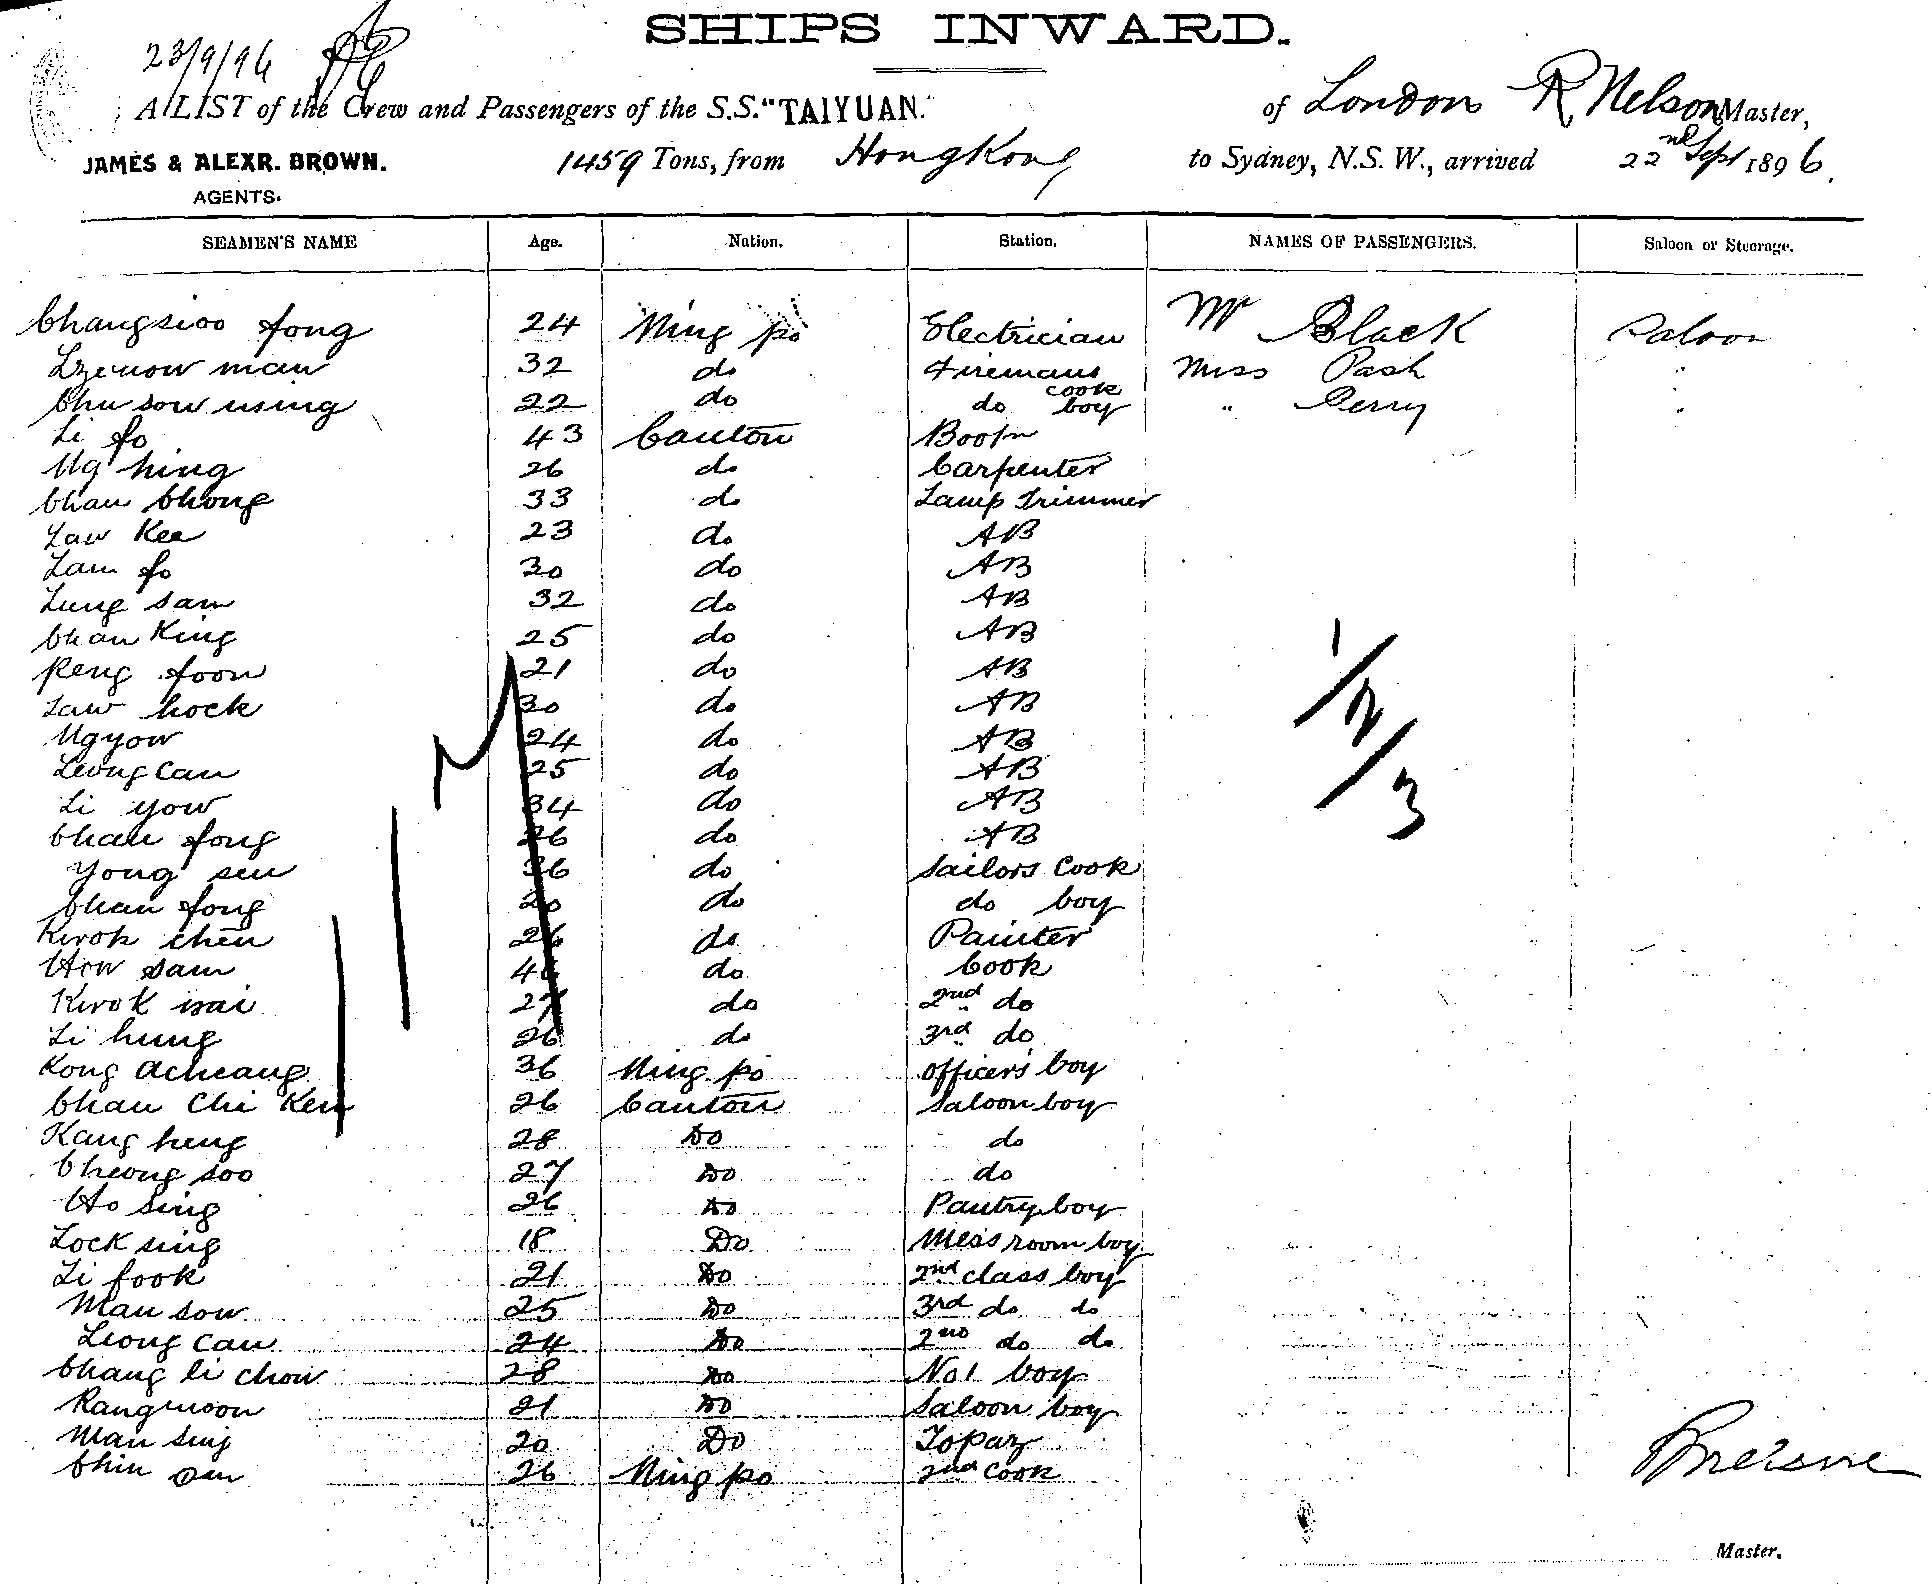 SHIPS INWARD.
23/9/96
A LIST of the Crew and Passengers of the S.S. "TAIYUAN." of London R Nelson Master,
JAMES & ALEXR. BROWN. 1459 Tons, from HongKong to Sydney, N.S.W., arrived 22nd Sept 1896.
AGENTS.
SEAMEN'S NAME Age. Nation. Station. NAMES OF PASSENGERS. Saloon or Steerage.
Changsioo fong 24 Ning po Electrician Mr Black Saloon
man 32 do Firemans cook Miss Pash "
Chu sow using 22 do do boy " Perry "
Li fo 43 Canton Boats'n
Ng hing 26 do Carpenter
Chan Chong 33 do Lamp Trimmer
Law Kee 23 do AB
Lam fo 30 do AB
Lung sam 32 do AB
Chan King 25 do AB
Peng foon 21 do AB
Law hock 30 do AB
Ng yow 24 do AB
Leong Can 25 do AB
Li yow 34 do AB
Chan fong 26 do AB
Yong sun 36 do Sailors Cook
Chan fong 20 do do boy
Kwok chen 26 do Painter
How sam 46 do Cook
Kwok wai 27 do 2nd do
Li hung 26 do 3rd do
Kong acheang 36 Ning po officer's boy
Chan Chi Ken 26 Canton Saloon boy
Kang heng 28 Do do
Cheong soo 27 Do do
Ho sing 26 Do Pantry boy
Lock sing 18 Do Mess room boy
Li fook 21 Do 2nd class boy
Man sow 25 Do 3rd do do
Leong Can 24 Do 2nd do do
Chang li chow 28 Do No 1 boy
Kangmoon 21 Do Saloon boy
Man sing 20 Do Topaz
Chin 26 Ning po 2nd Cook
1/2/3
Master.